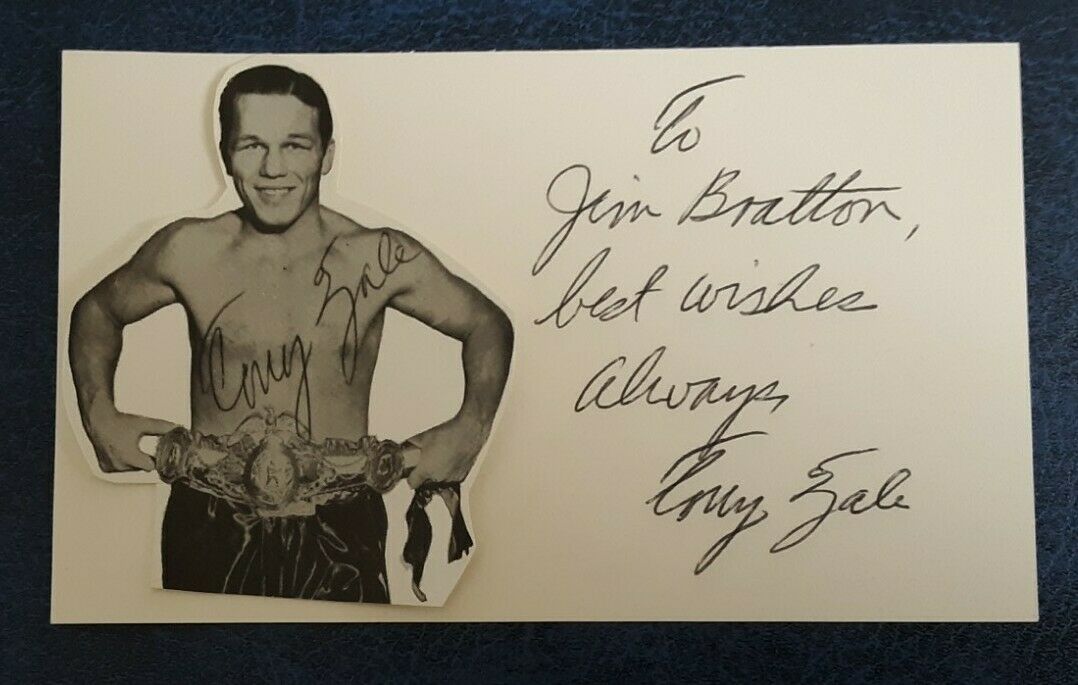 Tony Zale
To
Jim Bratton,
best wishes
Always
Tony Zale